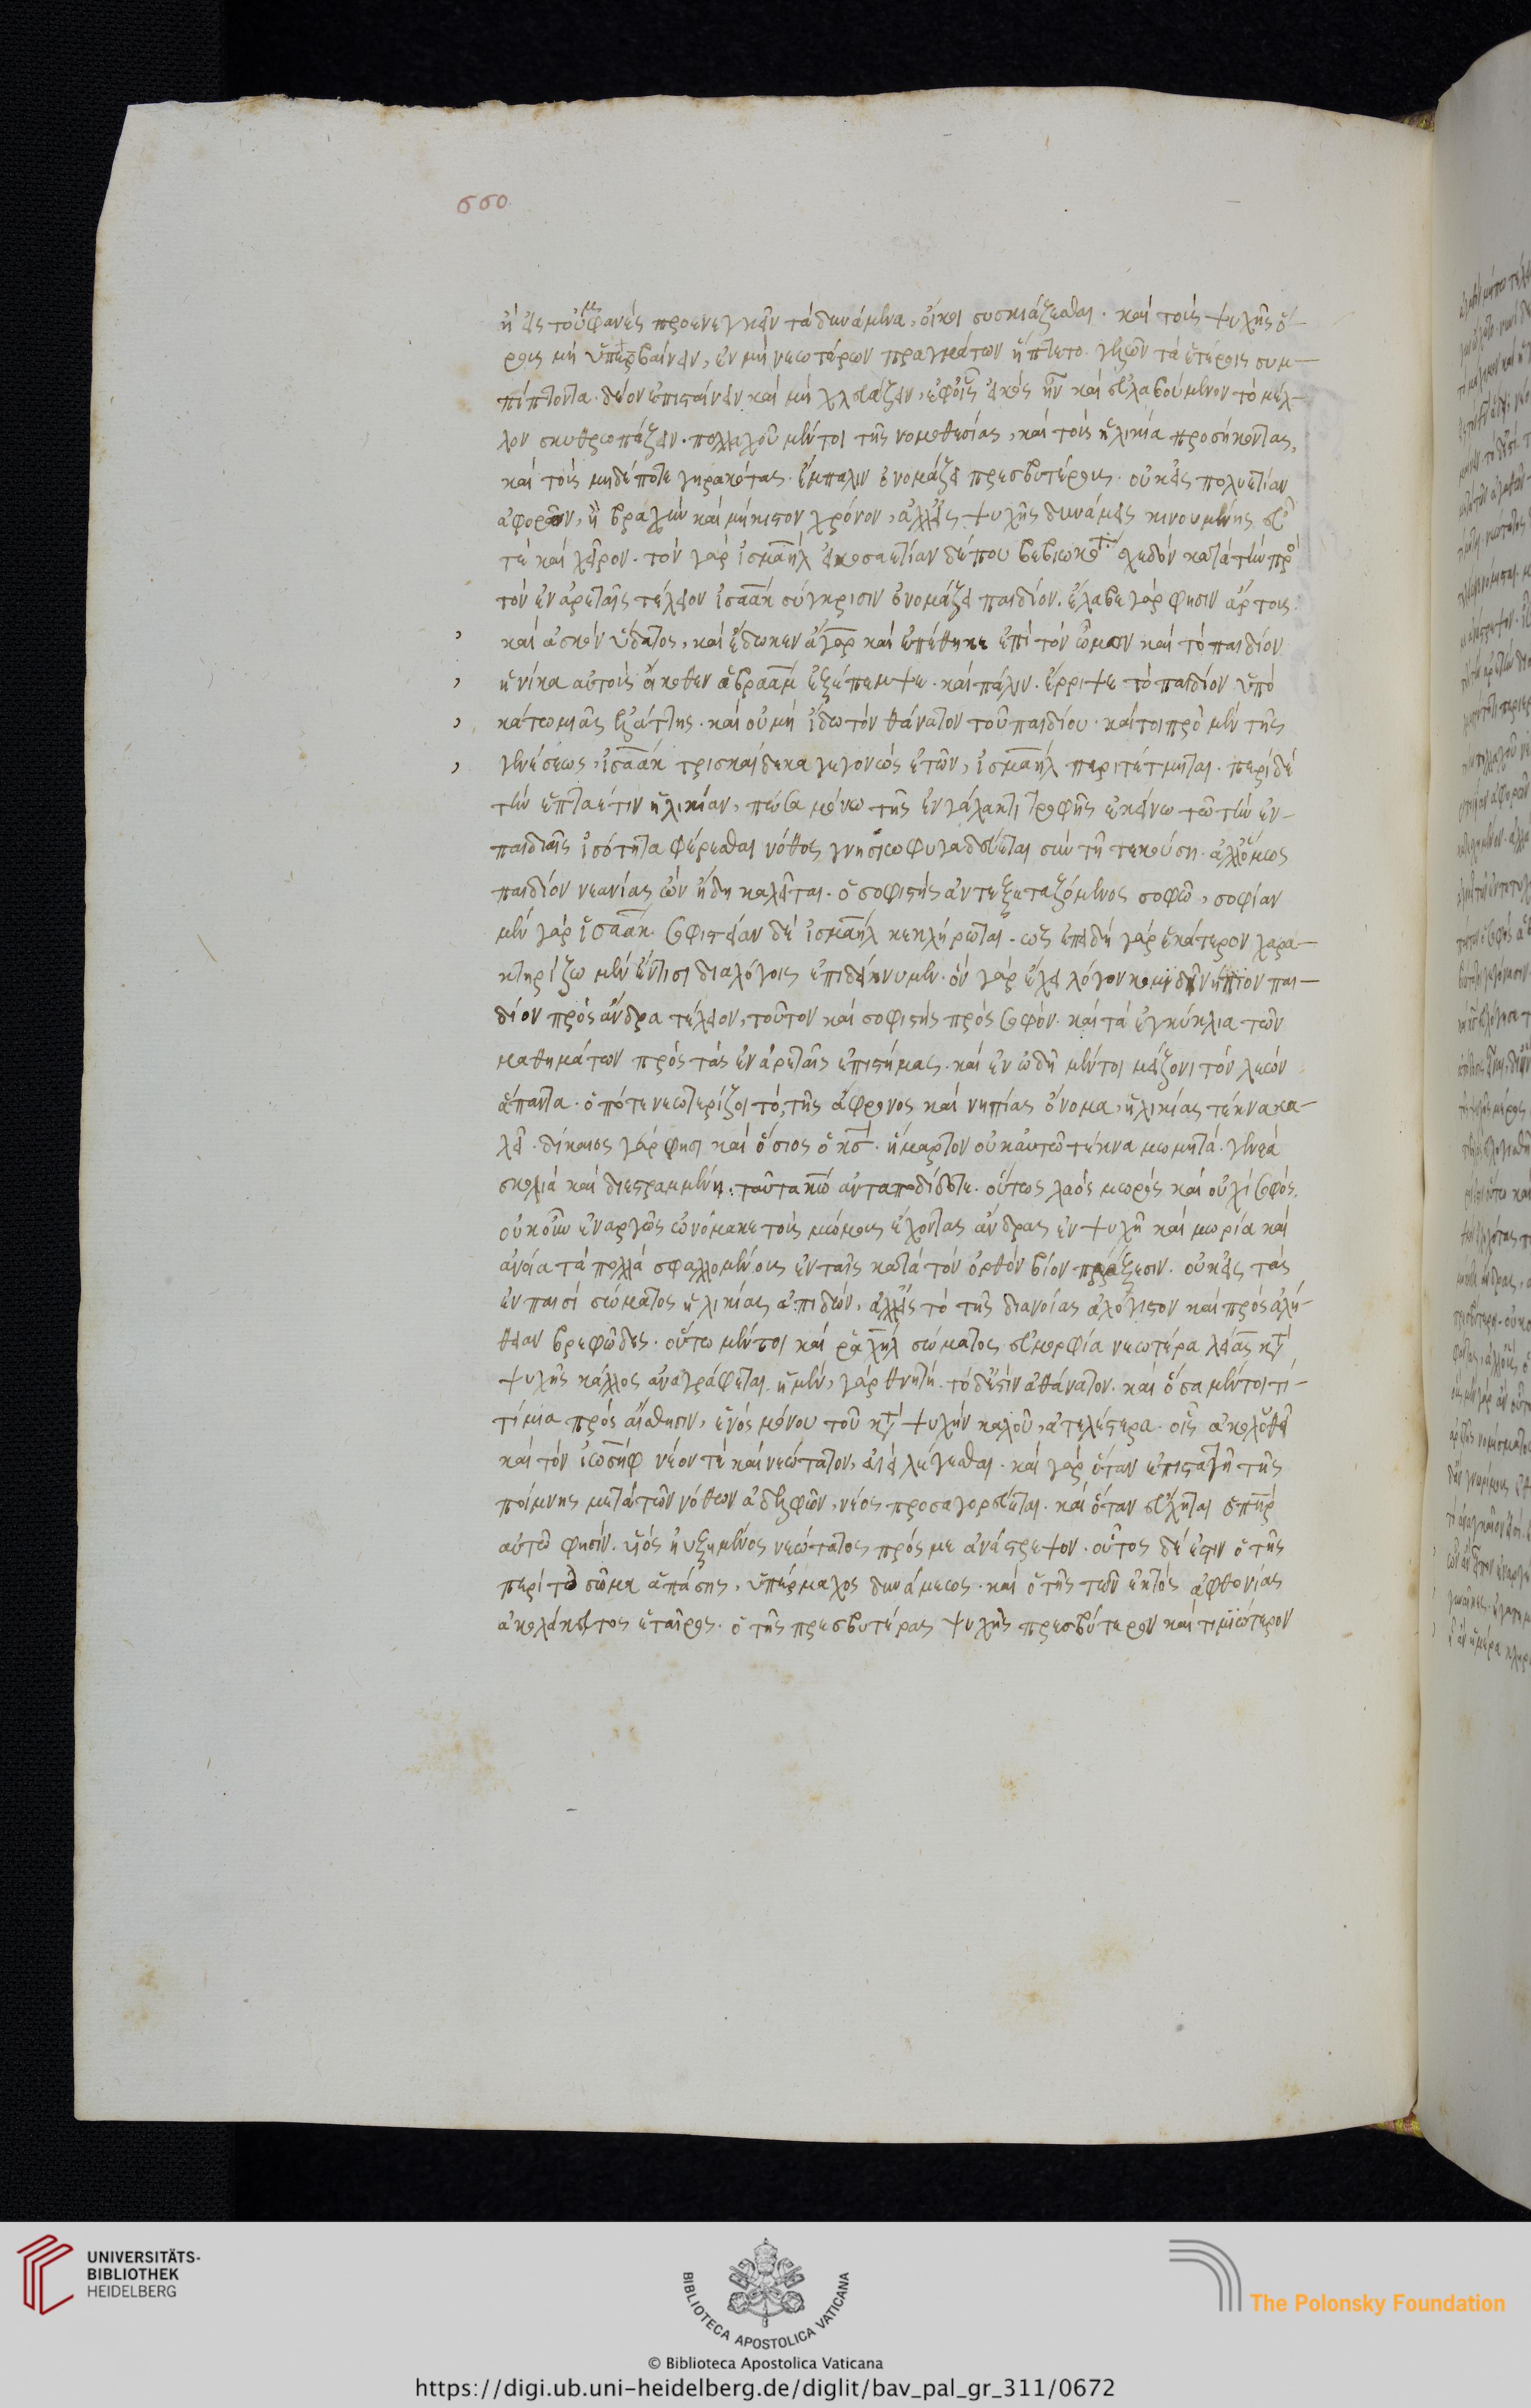 660
ἢ εἰς τοὐμφανὲς προενεγκεῖν τὰ δυνάμενα, οἴκοι συσκιάζεσθαι. καὶ τοὺς ψυχῆς ὅ-
ρους μὴ ὑπερβαίνειν, ἐν μὴ νεωτέρων πραγμάτων ἥπτετο. γελῶν τὰ ἑτέροις συμ-
πίπτοντα. δέον ἐπιστένειν καὶ μὴ χλευάζειν, ἐφ' οἷς εἰκὸς ἦν καὶ εὐλαβούμενον τὸ μέλ-
λον σκυθρωπάζειν. πολλαχοῦ μέντοι τῆς νομοθεσίας, καὶ τοὺς ἡλικία προσήκοντας,
καὶ τοὺς μηδέποτε γηρακότας. ἔμπαλιν ὀνομάζει πρεσβυτέρους. οὐκ εἰς πολυετίαν
ἀφορῶν, ἢ βραχὺν καὶ μήκιστον χρόνον, ἀλλ' εἰς ψυχῆς δυνάμεις κινουμένης εὖ
τὲ καὶ χεῖρον. τὸν γὰρ ἰσμαὴλ εἰκοσαετίαν δέπου βεβιωκότ. σχεδὸν κατὰ τὴν πρὸ
τὸν ἐν ἀρεταῖς τέλειον ἰσαὰκ σύγκρισιν ὀνομάζει παιδίον. ἔλαβε γάρ φησιν ἄρτους
καὶ ἀσκὸν ὕδατος, καὶ ἔδωκεν ἄγαρ καὶ ἐπέθηκε ἐπὶ τὸν ὦμον καὶ τὸ παιδίον
ἡνίκα αὐτοὺς οἴκοθεν ἀβραὰμ ἐξέπεμψε. καὶ πάλιν. ἔρριψε τὸ παιδίον ὑπὸ
κάτω μιᾶς ἐλάτης. καὶ οὐ μὴ ἴδω τὸν θάνατον τοῦ παιδίου. καίτοι πρὸ μὲν τῆς
γενέσεως, ἰσαὰκ τρισκαίδεκα γεγονὼς ἐτῶν, ἰσμαὴλ περιτέτμηται. περὶ δὲ
τὴν ἑπταέτιν ἡλικίαν, παύσα μένω τῆς ἐν γάλακτι τροφῆς ἐκείνω τῶ τὴν ἐν-
παιδιαῖς ἰσότητα φέρεσθαι νόθος γνησίω φυγαδεύεται σὺν τῆ τεκούση. ἀλλ' ὅμως
παιδίον νεανίας ὢν ἤδη καλεῖται. ὁ σοφιστὴς ἀντεξεταζόμενος σοφῶ, σοφίαν
μὲν γὰρ ἰσαὰκ. σοφιστείαν δὲ ἰσμαὴλ κεκλήρωται. ὡς ἐπειδὴ γὰρ ἑκάτερον χαρα-
κτηρίζω μὲν ἔν τισι διαλόγοις ἐπιδείκνυμεν. ὃν γὰρ ἔχει λόγον κομιδῆ νήπιον παι-
δίον πρὸς ἄνδρα τέλειον, τοῦτον καὶ σοφιστὴς πρὸς σοφόν. καὶ τὰ ἐγκύκλια τῶν
μαθημάτων πρὸς τὰς ἐν ἀρεταῖς ἐπιστήμας. καὶ ἐν ὠδῆ μέντοι μείζονι τὸν λεὼν
ἅπαντα. ὁπότε νεωτερίζοι τὸ, τῆς ἄφρονος καὶ νηπίας ὄνομα, ἡλικίας τέκνα κα-
λεῖ. δίκαιος γάρ φησι καὶ ὅσιος ὁ κσ. ἡμάρτον οὐκ αὐτῶ τέκνα μωμητὰ. γενεὰ
σκολιὰ καὶ διεστραμμένη. ταῦτα κω ἀνταποδίδοτε. οὕτως λαὸς μωρὸς καὶ οὐχὶ σοφὸς.
οὐκοῦν ἐναργῶς ὠνόμακε τοὺς μώμους ἔχοντας ἄνδρας ἐν ψυχῆ καὶ μωρία καὶ
ἀνοία τὰ πολλὰ σφαλλομένους ἐν ταῖς κατὰ τὸν ὀρθὸν βίον πράξεσιν. οὐκ εἰς τὰς
ἐν παισὶ σώματος ἡλικίας ἀπιδών, ἀλλ' εἰς τὸ τῆς διανοίας ἀλόγιστον καὶ πρὸς ἀλή-
θειαν βρεφῶδες. οὕτω μέντοι καὶ ῥαχὴλ σώματος εὐμορφία νεωτέρα λείας κτ
ψυχῆς κάλλος ἀναγράφεται. ἡ μὲν, γὰρ θνητὴ. τὸ δέ ἐστιν ἀθάνατον. καὶ ὅσα μέντοι τι-
τίμια πρὸς αἴσθησιν, ἑνὸς μόνου τοῦ κτ ψυχὴν καλοῦ, ἀτελέστερα. οἷς ἀκολουθεῖ
καὶ τὸν ἰωσὴφ νέον τὲ καὶ νεώτατον, ἀεὶ λέγεσθαι. καὶ γὰρ ὅταν ἐπιστατῆ τῆς
ποίμνης μετὰ τῶν νόθων ἀδελφῶν, νέος προσαγορεύεται. καὶ ὅταν εὔχηται ὁ πὴρ
αὐτῶ φησίν. υἱὸς ηὐξημένος νεώτατος πρός με ἀνάστρεψον. οὗτος δέ ἐστιν ὁ τῆς
περὶ τὸ σῶμα ἁπάσης, ὑπέρμαχος δυνάμεως. καὶ ὁ τῆς τῶν ἐκτὸς ἀφθονίας
ἀκολάκευτος ἑταῖρος. ὁ τῆς πρεσβυτέρας ψυχῆς πρεσβύτερον καὶ τιμιώτερον
UNIVERSITÄTS-
BIBLIOTHEK
HEIDELBERG
BIBLIOTECA APOSTOLICA VATICANA
The Polonsky Foundation
© Biblioteca Apostolica Vaticana
https://digi.ub.uni-heidelberg.de/diglit/bav_pal_gr_311/0672